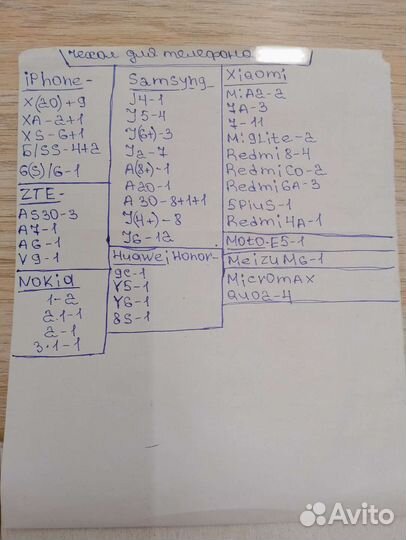 чехол для телефона
iPhone-
X(10)+9
XA-2+1
XS-6+1
5/SS-4+2
6(S)/6-1
ZTE-
A530-3
A7-1
A6-1
V9-1
Nokia
1-2
2.1-1
2-1
3.1-1
Samsyng-
J4-1
J5-4
J(6+)-3
J2-7
A(8+)-1
A20-1
A30-8+1+1
J(4+)-8
J6-12
Huawei Honor-
9c-1
Y5-1
Y6-1
8S-1
Xiaomi
MiA2-2
7A-3
7-11
Mi9Lite-2
Redmi8-4
RedmiGo-2
Redmi6A-3
5Plus-1
Redmi4A-1
Moto-E5-1
MeizuM6-1
Micromax
Q402-4
Avito